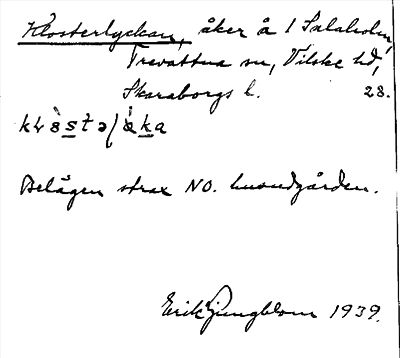 Klosterlyckan, åker å 1 Salaholm,
Trevattna sn, Vilske hd,
Skaraborgs l. 28.
Belägen strax NO. huvudgården.
Erik Ljungblom 1939.